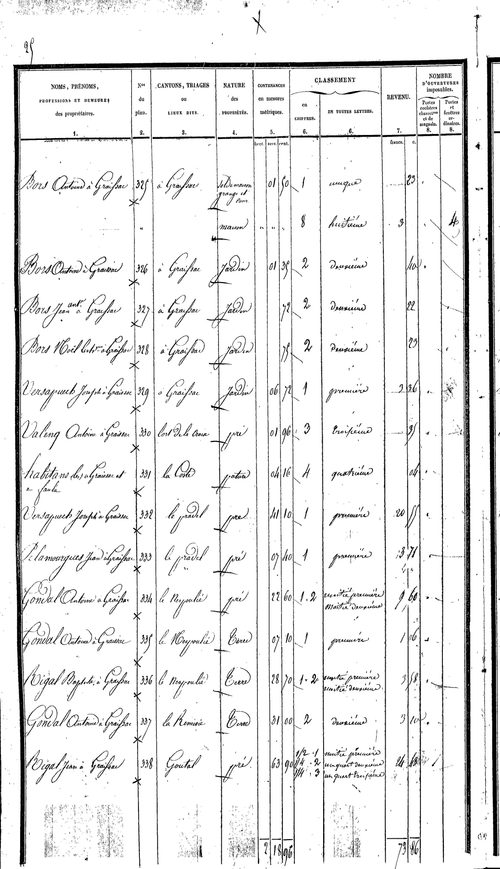 25
NOMS, PRÉNOMS,
PROFESSIONS ET DEMEURES
des propriétaires.
1.
Nos
du
plan.
2.
CANTONS, TRIAGES
ou
LIEUX DITS.
3.
NATURE
des
PROPRIÉTÉS.
4.
CONTENANCES
en mesures
métriques.
5.
CLASSEMENT
en
CHIFFRES.
6.
EN TOUTES LETTRES.
6.
REVENU.
7.
NOMBRE
D'OUVERTURES
imposables.
Portes
cochères
charretres
et de
magasin.
8.
Portes
et
fenêtres
ordinaires.
8.
hect. ares cent.
francs. c.
Bors Antoine à Graissac 325 à Graissac grange et 01 50 1 unique 23
maison 8 huitième 3 4
Bors Antoine à Graissac 326 à Graissac Jardin 01 35 2 deuxième 40
Bors Jean à Graissac 327 à Graissac Jardin 72 2 deuxième 22
Bors Noël à Graissac 328 à Graissac Jardin 75 2 deuxième 23
Joseph à Graissac 329 à Graissac Jardin 06 72 1 première 2 36
Valenq Antoine à Graissac 330 pré 01 96 3 troisième 35
habitans de Graissac et 331 la Coste pature 04 16 4 quatrième 04
Joseph à Graissac 332 le pradel pré 41 10 1 première 20 55
Jean à Graissac 333 le pradel pré 07 40 1 première 3 71
Gondal Antoine à Graissac 334 pré 22 60 1-2 moitié première 9 60
moitié deuxième
Gondal Antoine à Graissac 335 Terre 07 10 1 première 1 06
Rigal Baptiste à Graissac 336 Terre 28 70 1-2 moitié première 3 58
moitié deuxième
Gondal Antoine à Graissac 337 Terre 31 00 2 deuxième 3 10
Rigal Jean à Graissac 338 Goutal pré 63 90 1/2 - 1 moitié première 24 68
1/4 - 2 un quart deuxième
1/4 - 3 un quart troisième
2 18 96 73 86